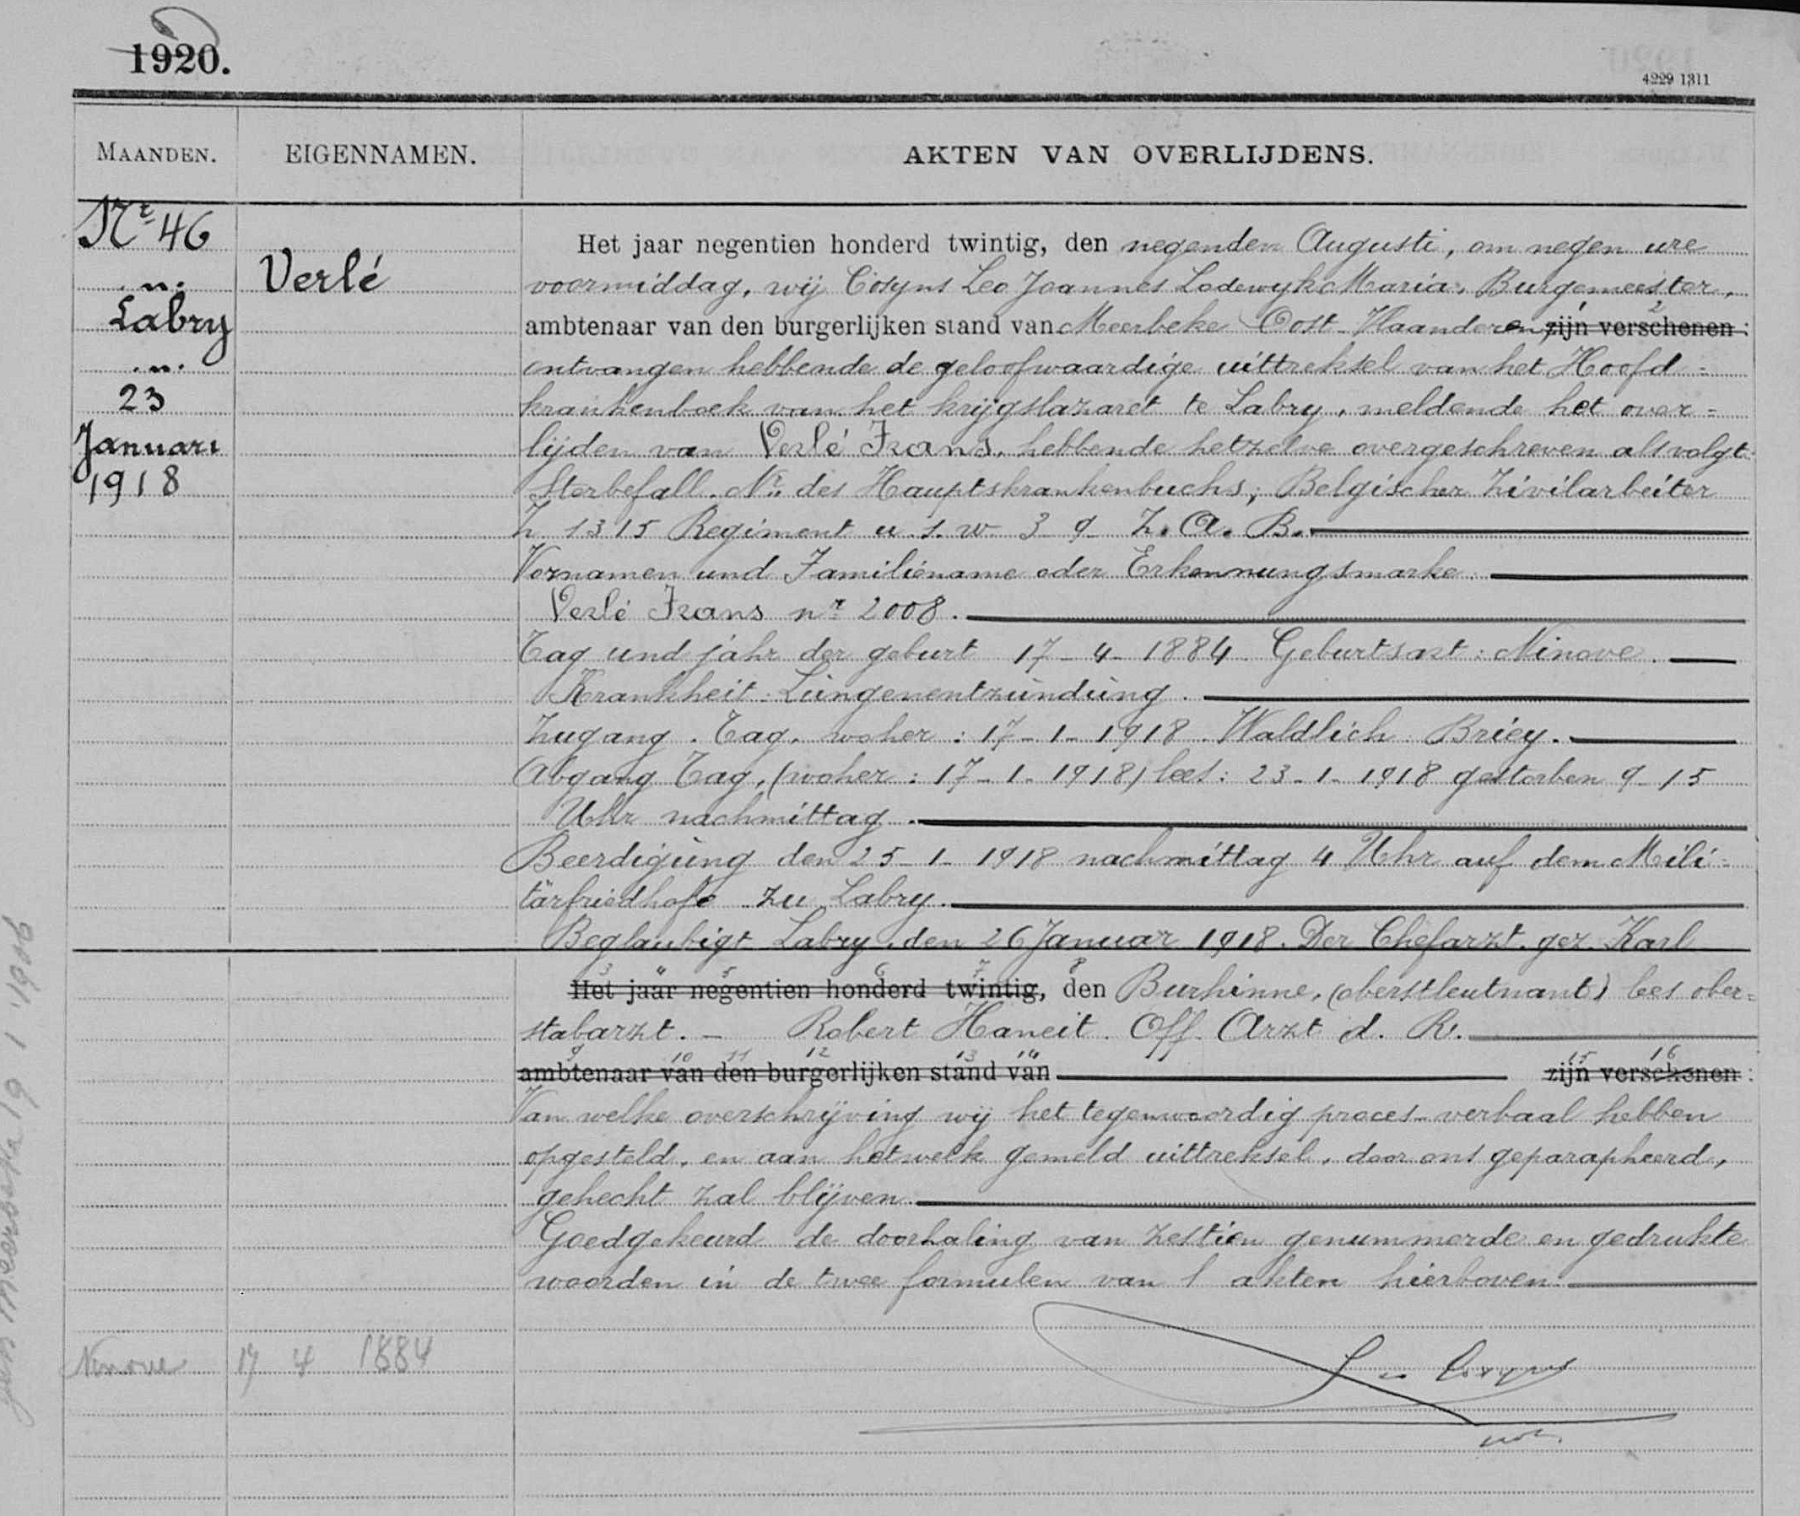 1920.
4229 1311
MAANDEN.
EIGENNAMEN.
AKTEN VAN OVERLIJDENS.
Nr 46
Labry
23
Januari
1918
Verlé
Het jaar negentien honderd twintig, den negenden Augusti, om negen ure
voormiddag, wij Cosyns Leo Joannes Lodewyk Maria, Burgemeester,
ambtenaar van den burgerlijken stand van Meerbeke Oost-Vlaanderen, zijn verschenen :
ontvangen hebbende de geloofwaardige uittreksel van het Hoofd=
krankenboek van het krijgslazaret te Labry, meldende het over=
lijden van Verlé Frans, hebbende hetzelve overgeschreven als volgt
Sterbefall. Nr. des Hauptskrankenbuchs; Belgischer Zivilarbeiter
Z. 1315 Regiment u. s. w. 3-9- Z. A. B.
Vornamen und Familiename oder Erkennungsmarke.
Verlé Frans nr 2008.
Tag und jahr der geburt 17-4-1884 Geburtsort : Ninove.
Krankheit : Lungenentzündung.
Zugang. Tag, woher : 17-1-1918. Waldlich Briey.
Abgang Tag, (woher : 17-1-1918) lees : 23-1-1918 gestorben 9-15
Uhr nachmittag.
Beerdigung den 25-1-1918 nachmittag 4 Uhr auf dem Mili=
tärfriedhofe zu Labry.
Beglaubigt Labry, den 26 Januar 1918. Der Chefarzt. gez. Karl
Het jaar negentien honderd twintig, den Burhinne, (oberstleutnant) lees ober=
stabarzt. — Robert Haneit. Off. Arzt d. R.
ambtenaar van den burgerlijken stand van zijn verschenen :
Van welke overschrijving wij het tegenwoordig proces-verbaal hebben
opgesteld, en aan hetwelk gemeld uittreksel, door ons geparapheerd,
gehecht zal blijven.
Goedgekeurd de doorhaling van zestien genummerde en gedrukte
woorden in de twee formulen van akten hierboven.
L. Cosyns
Ninove 17 4 1884
Meerbeke 19 1 1906